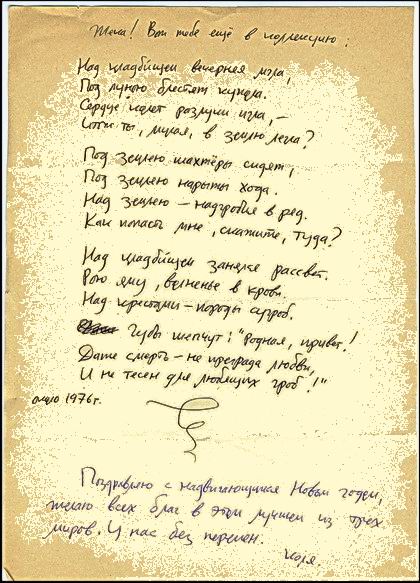 Жена! Вот тебе ещё в коллекцию:
Над кладбищем вечерняя мгла,
Под луною блестят купола.
Сердце колет разлуки игла, –
Что ж ты, милая, в землю легла?
Под землею шахтёры сидят,
Под землею нарыты хода.
Над землею – надгробия в ряд.
Как попасть мне, скажите, туда?
Над кладбищем занялся рассвет.
Рою яму, волненье в крови.
Над крестами – породы сугроб.
Губы шепчут: "Родная, привет!
Даже смерть – не преграда любви,
И не тесен для любящих гроб!"
около 1976 г.
Поздравляю с надвигающимся Новым годом,
желаю всех благ в этом лучшем из трех
миров. У нас без перемен.
Коля.